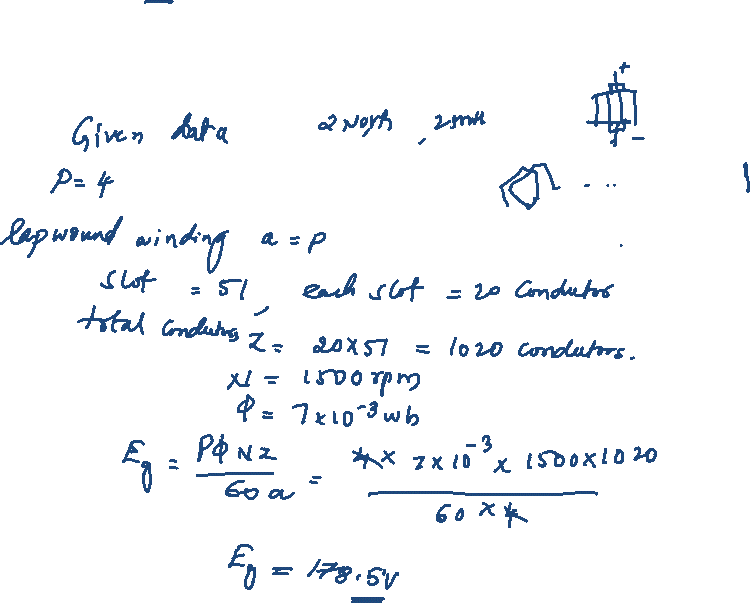 Given data 2 North, 2 south
P = 4
lap wound winding a = P
slot = 51, each slot = 20 Condutors
total condutors Z = 20 x 51 = 1020 condutors.
N = 1500 rpm
Φ = 7 x 10^-3 wb
Eg = PΦNZ / 60 a = 4 x 7 x 10^-3 x 1500 x 1020 / 60 x 4
Eg = 178.5V